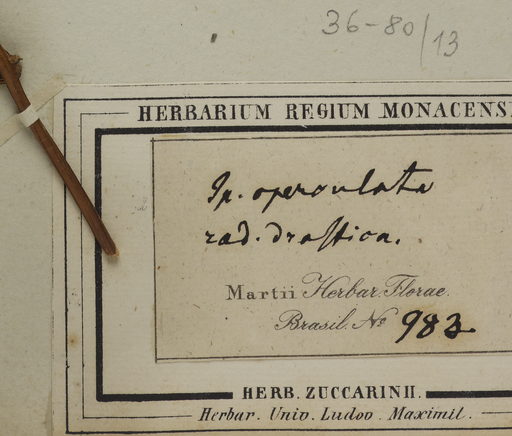 36-80/13
HERBARIUM REGIUM MONACENS
Ip. operculata
rad. drastica.
Martii Herbar. Florae.
Brasil. No 983
HERB. ZUCCARINII.
Herbar. Univ. Ludov. Maximil.